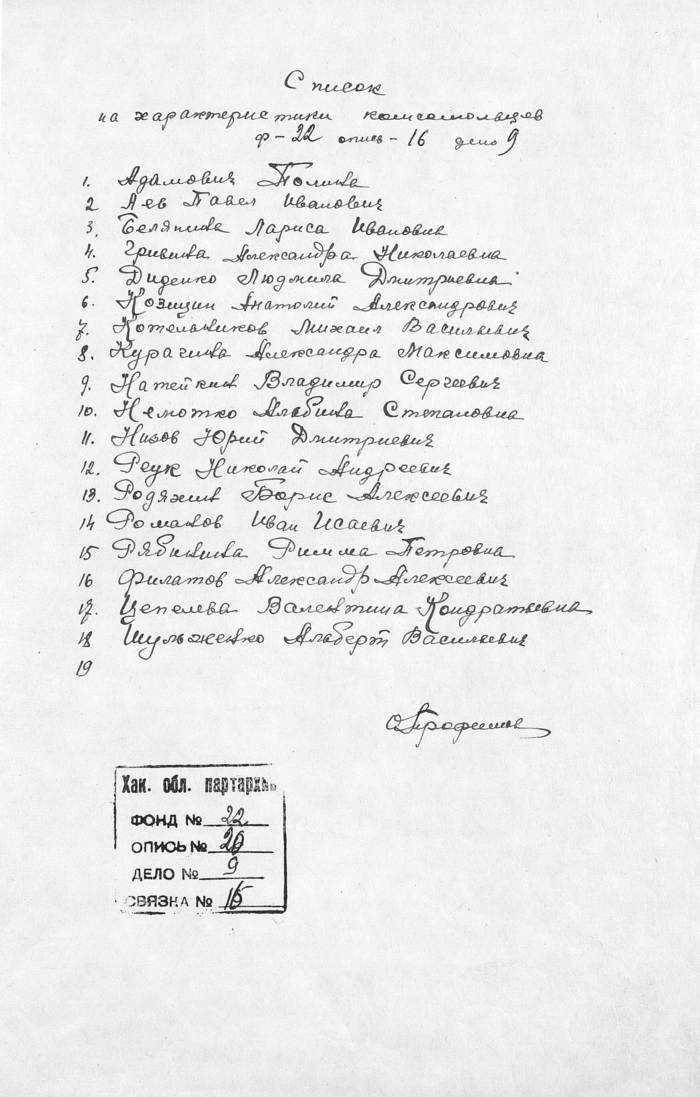 Список
на характеристики комсомольцев
ф-22 опись-16 дело 9
1. Адамович Полина
2 Лев Павел Иванович
3. Белянина Лариса Ивановна
4. Гривина Александра Николаевна
5. Диденко Людмила Дмитриевна
6. Козицин Анатолий Александрович
7. Котельников Михаил Васильевич
8. Курагина Александра Максимовна
9. Натейкин Владимир Сергеевич
10. Немотко Альбина Степановна
11. Низов Юрий Дмитриевич
12. Реук Николай Андреевич
13. Родяхин Борис Алексеевич
14 Романов Иван Исаевич
15 Рябинина Римма Петровна
16 Филатов Александр Алексеевич
17. Цепелева Валентина Кондратьевна
18 Шульженко Альберт Васильевич
19
Хак. обл. партархив
ФОНД № 22
ОПИСЬ №
ДЕЛО № 9
СВЯЗКА №